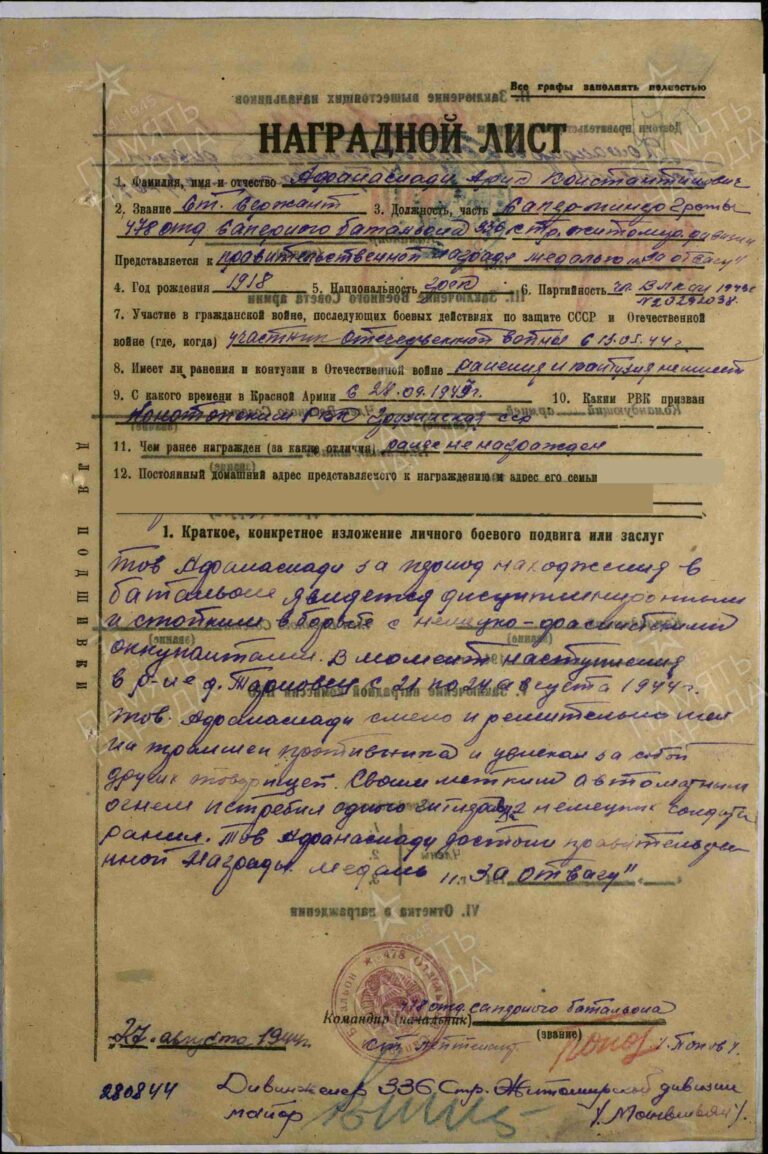 Все графы заполнять полностью
НАГРАДНОЙ ЛИСТ
1. Фамилия, имя и отчество Афанасиади Константинович
2. Звание Ст. Сержант 3. Должность, часть
478 отд Саперного батальона 336 стр. житомир. дивизии
Представляется к правительственной награде медалью „За отвагу"
4. Год рождения 1918 5. Национальность грек 6. Партийность
7. Участие в гражданской войне, последующих боевых действиях по защите СССР и Отечественной
войне (где, когда) участник отечественной войны с 13.05.44 г.
8. Имеет ли ранения и контузии в Отечественной войне ранения и контузия не имеет
9. С какого времени в Красной Армии с 28.09. 10. Каким РВК призван
РВК Грузинская сср
11. Чем ранее награжден (за какие отличия) ранее не награжден
12. Постоянный домашний адрес представляемого к награждению и адрес его семьи
1. Краткое, конкретное изложение личного боевого подвига или заслуг
Тов Афанасиади за период нахождения в
батальоне явидется дисциплинированным
и стойким в борьбе с немецко-фашистскими
оккупантами. В момент наступления
в р-не д. Тарновец с 21 по 24 августа 1944 г.
тов. Афанасиади смело и решительно шел
на траншеи противника и увлекал за собой
других товарищей. Своим метким автоматным
огнем истребил одного 2 немецких солдата
ранил. Тов Афанасиади достоин правительстве
нной Награды медаль „За отвагу"
ДЛЯ ПОДШИВКИ
478 отд саперного батальона
Командир (начальник)
(звание)
„27" августа 1944 г. ст. лейтенант /Попов/.
280844
Дивинженер 336 Стр. Житомирской дивизии
майор
ПАМЯТЬ НАРОДА